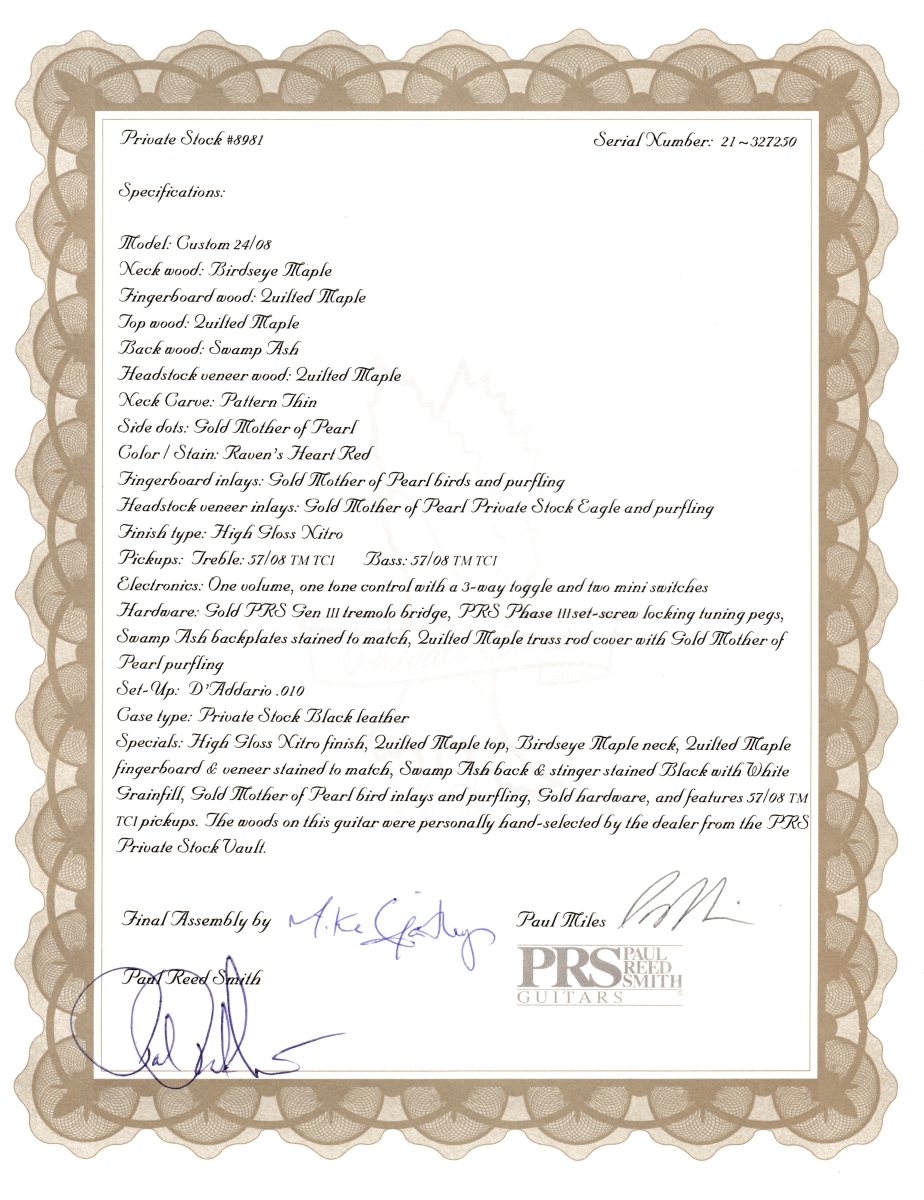 Private Stock #8981 Serial Number: 21~327250
Specifications:
Model: Custom 24/08
Neck wood: Birdseye Maple
Fingerboard wood: Quilted Maple
Top wood: Quilted Maple
Back wood: Swamp Ash
Headstock veneer wood: Quilted Maple
Neck Carve: Pattern Thin
Side dots: Gold Mother of Pearl
Color / Stain: Raven's Heart Red
Fingerboard inlays: Gold Mother of Pearl birds and purfling
Headstock veneer inlays: Gold Mother of Pearl Private Stock Eagle and purfling
Finish type: High Gloss Nitro
Pickups: Treble: 57/08 TM TCI Bass: 57/08 TM TCI
Electronics: One volume, one tone control with a 3-way toggle and two mini switches
Hardware: Gold PRS Gen III tremolo bridge, PRS Phase III set-screw locking tuning pegs,
Swamp Ash backplates stained to match, Quilted Maple truss rod cover with Gold Mother of
Pearl purfling
Set-Up: D'Addario .010
Case type: Private Stock Black leather
Specials: High Gloss Nitro finish, Quilted Maple top, Birdseye Maple neck, Quilted Maple
fingerboard & veneer stained to match, Swamp Ash back & stinger stained Black with White
Grainfill, Gold Mother of Pearl bird inlays and purfling, Gold hardware, and features 57/08 TM
TCI pickups. The woods on this guitar were personally hand-selected by the dealer from the PRS
Private Stock Vault.
Final Assembly by Mike Paul Miles
Paul Reed Smith
PRS PAUL
REED
SMITH
GUITARS